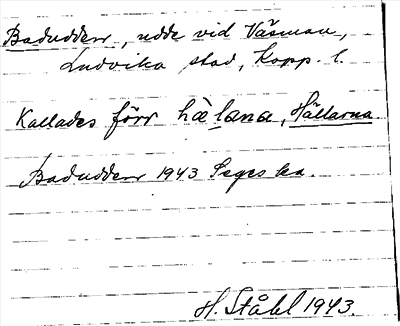 Badudden, udde vid Väsman,
Ludvika stad, Kopp. l.
Kallades förr hälana, Hällarna.
Badudden 1943
H. Ståhl 1943.